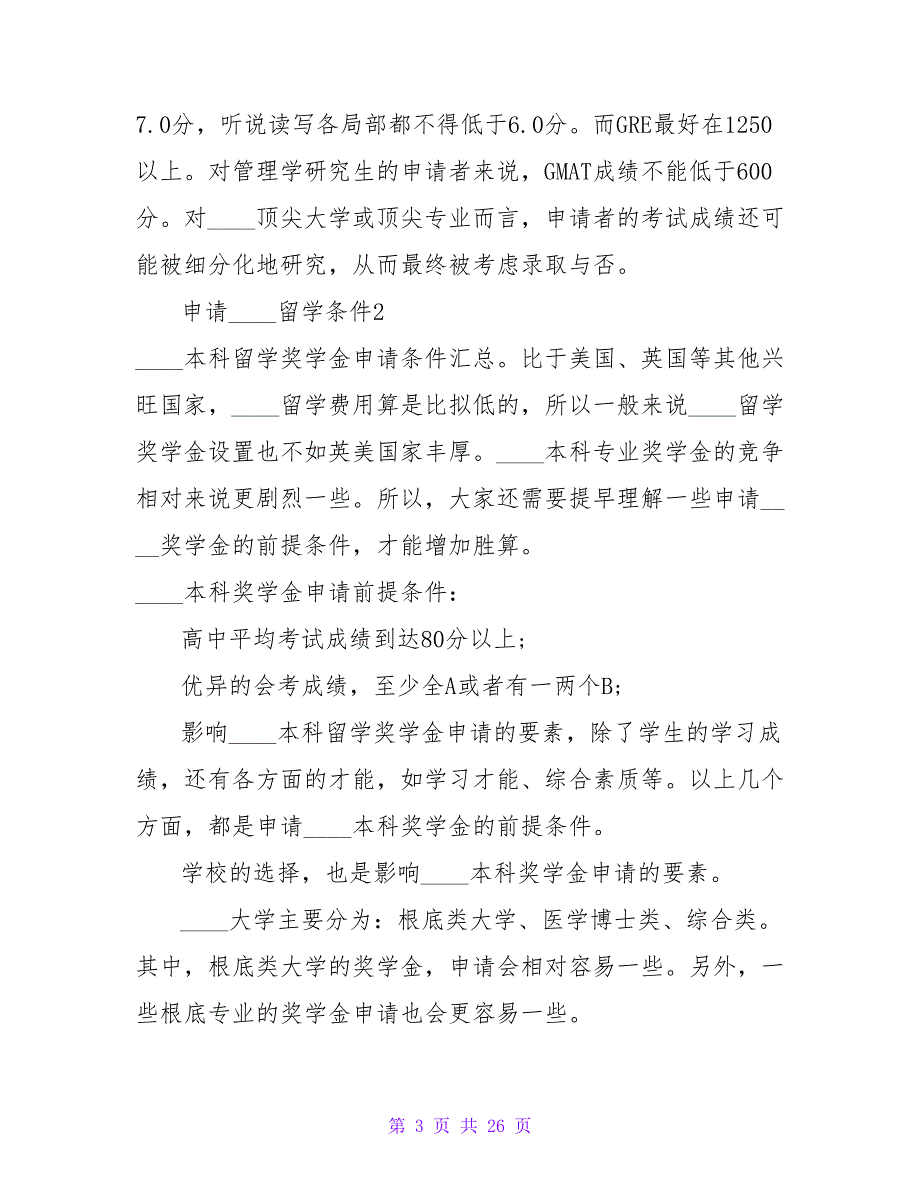 7.0分，听说读写各局部都不得低于6.0分。而GRE最好在1250
以上。对管理学研究生的申请者来说，GMAT成绩不能低于600
分。对____顶尖大学或顶尖专业而言，申请者的考试成绩还可
能被细分化地研究，从而最终被考虑录取与否。
申请____留学条件2
____本科留学奖学金申请条件汇总。比于美国、英国等其他兴
旺国家，____留学费用算是比拟低的，所以一般来说____留学
奖学金设置也不如英美国家丰厚。____本科专业奖学金的竞争
相对来说更剧烈一些。所以，大家还需要提早理解一些申请__
__奖学金的前提条件，才能增加胜算。
____本科奖学金申请前提条件：
高中平均考试成绩到达80分以上；
优异的会考成绩，至少全A或者有一两个B；
影响____本科留学奖学金申请的要素，除了学生的学习成
绩，还有各方面的才能，如学习才能、综合素质等。以上几个
方面，都是申请____本科奖学金的前提条件。
学校的选择，也是影响____本科奖学金申请的要素。
____大学主要分为：根底类大学、医学博士类、综合类。
其中，根底类大学的奖学金，申请会相对容易一些。另外，一
些根底专业的奖学金申请也会更容易一些。
第 3 页 共 26 页